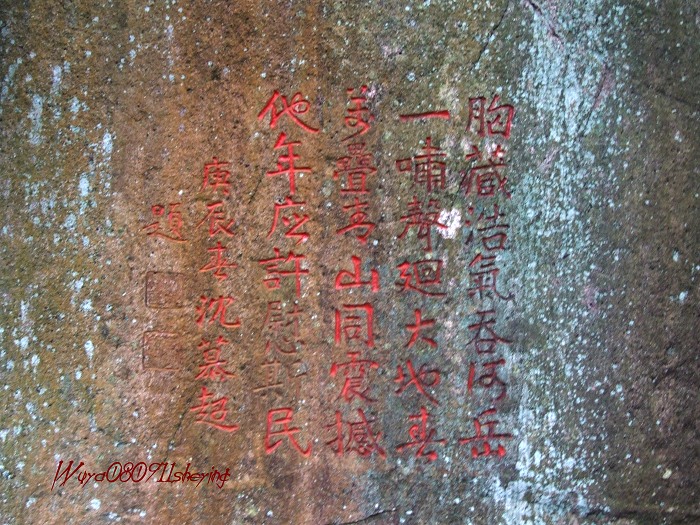 胸藏浩氣吞河岳
一嘯聲迴大地春
萬疊青山同震撼
他年应許慰斯民
庚辰春沈慕超
題
Wuya080911sheying